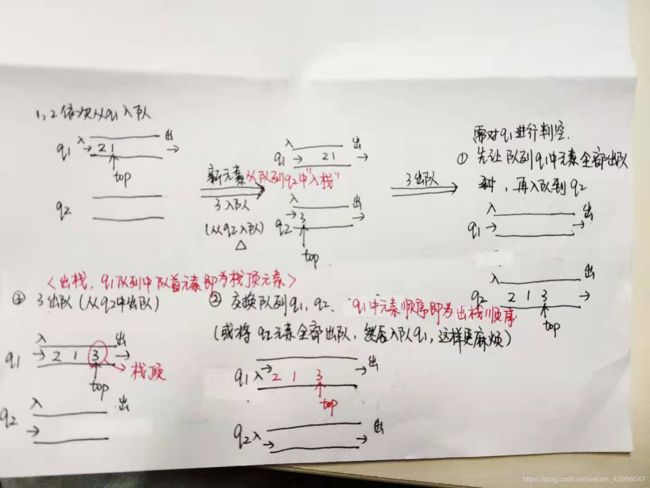 1,2依次从q1入队
入 出
q1 → 2 1 →
top
q2
新元素从队列q2中"入栈"
3入队
(从q2入队)
△
入 出
q1 → 21 →
入 出
q2 → 3 →
top
3出队
需对q1进行判空.
① 先让队列q1中元素全部出队
,再入队到q2
入 出
q1 → →
入 出
q2 → 2 1 3 →
top
② 交换队列q1, q2. q1中元素顺序即为出栈顺序
(或将q2元素全部出队,然后入队q1,这样更麻烦)
q1 入 → 2 1 3 → 出
top
q2 入 → → 出
<出栈,q1队列中队首元素即为栈顶元素>
3出队(从q2中出队)
入 出
q1 → 2 1 3 →
栈顶
top
入 出
q2 → →
https://blog.csdn.net/weixin_42956047